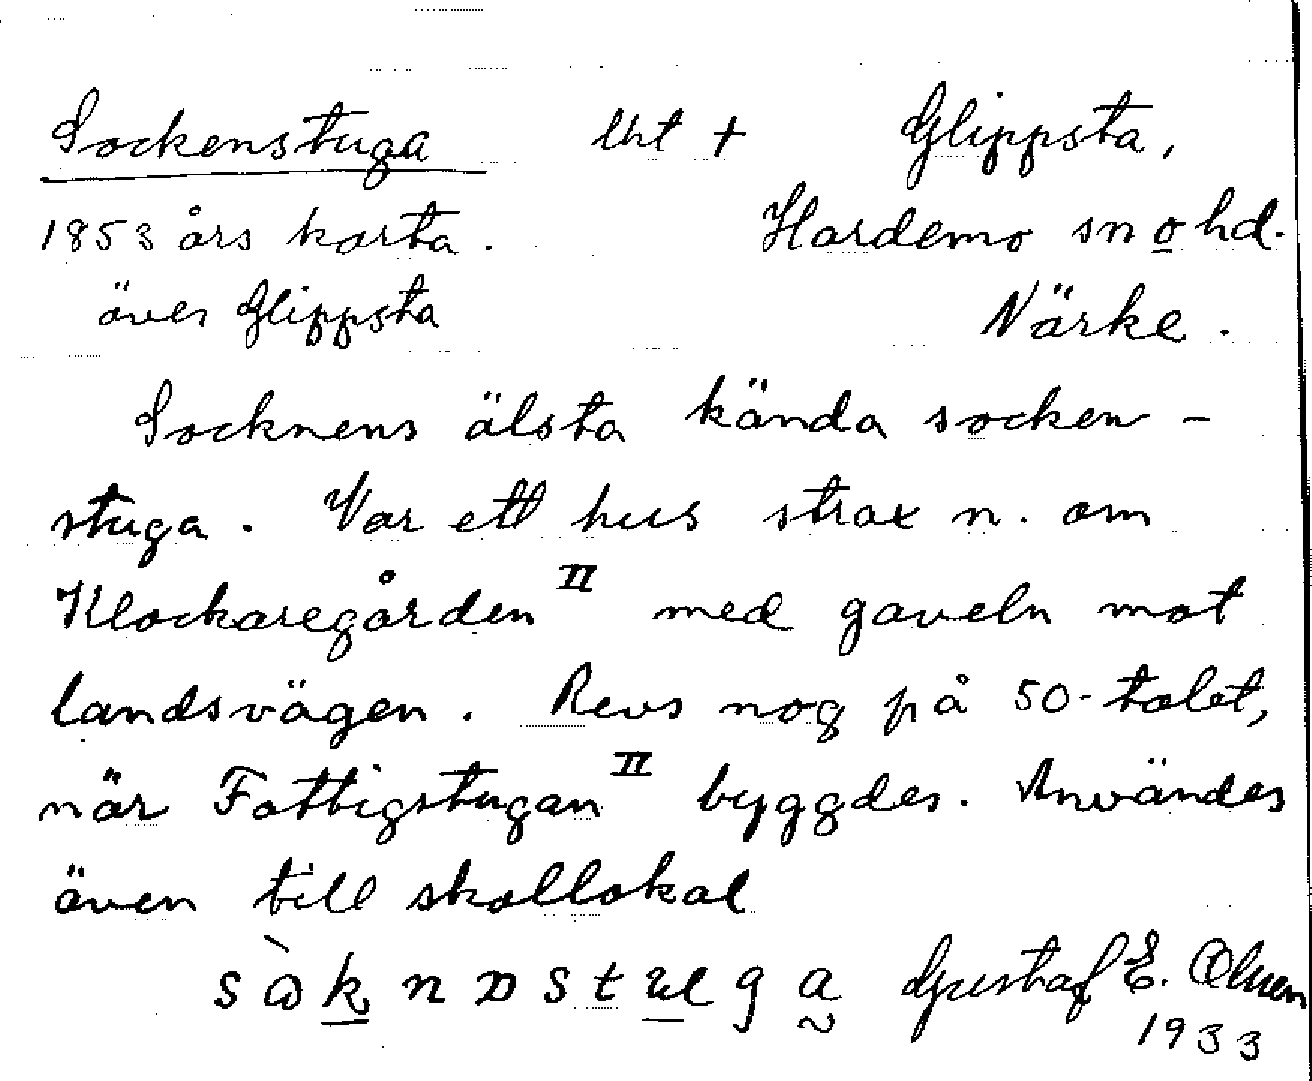 Sockenstuga Uht + Glippsta,
1853 års karta. Hardemo sn o hd.
över Glippsta Närke.
Socknens älsta kända socken-
stuga. Var ett hus strax n. om
Klockaregården II med gaveln mot
landsvägen. Revs nog på 50-talet,
när Fattigstugan II byggdes. Användes
även till skollokal
Gustaf E. Olsson
1933